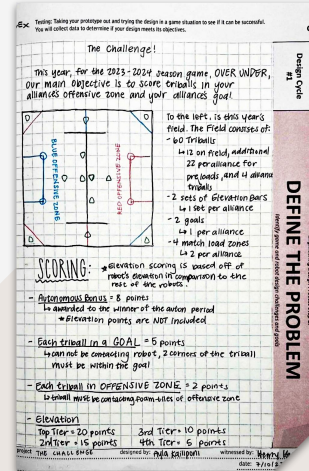 Ex Testing: Taking your prototype out and trying the design in a game situation to see if it can be successful.
You will collect data to determine if your design meets its objectives.
The Challenge!
This year, for the 2023-2024 season game, OVER UNDER,
our main objective is to score triballs in your
alliances offensive zone and your alliance's goal.
BLUE OFFENSIVE ZONE
RED OFFENSIVE ZONE
To the left, is this year's
field. The Field consists of:
- 60 Triballs
↳ 12 on field, additional
22 per alliance for
preloads, and 4 alliance
triballs
- 2 sets of Elevation Bars
↳ 1 set per alliance
- 2 goals
↳ 1 per alliance
- 4 match load zones
↳ 2 per alliance
SCORING:
*Elevation scoring is based off of
robots elevation in comparison to the
rest of the robots.
- Autonomous Bonus = 8 points
↳ awarded to the winner of the auton period
*Elevation points are NOT included
- Each triball in a GOAL = 5 points
↳ can not be contacting robot, 2 corners of the triball
must be within the goal
- Each triball in OFFENSIVE ZONE = 2 points
↳ triball must be contacting foam tiles of offensive zone
- Elevation
Top Tier = 20 points 3rd Tier = 10 points
2nd Tier = 15 points 4th Tier = 5 points
project THE CHALLENGE designed by: witnessed by: Henry
date: 7/10/2
Design Cycle
#1
DEFINE THE PROBLEM
Identify game and robot design challenges and goals